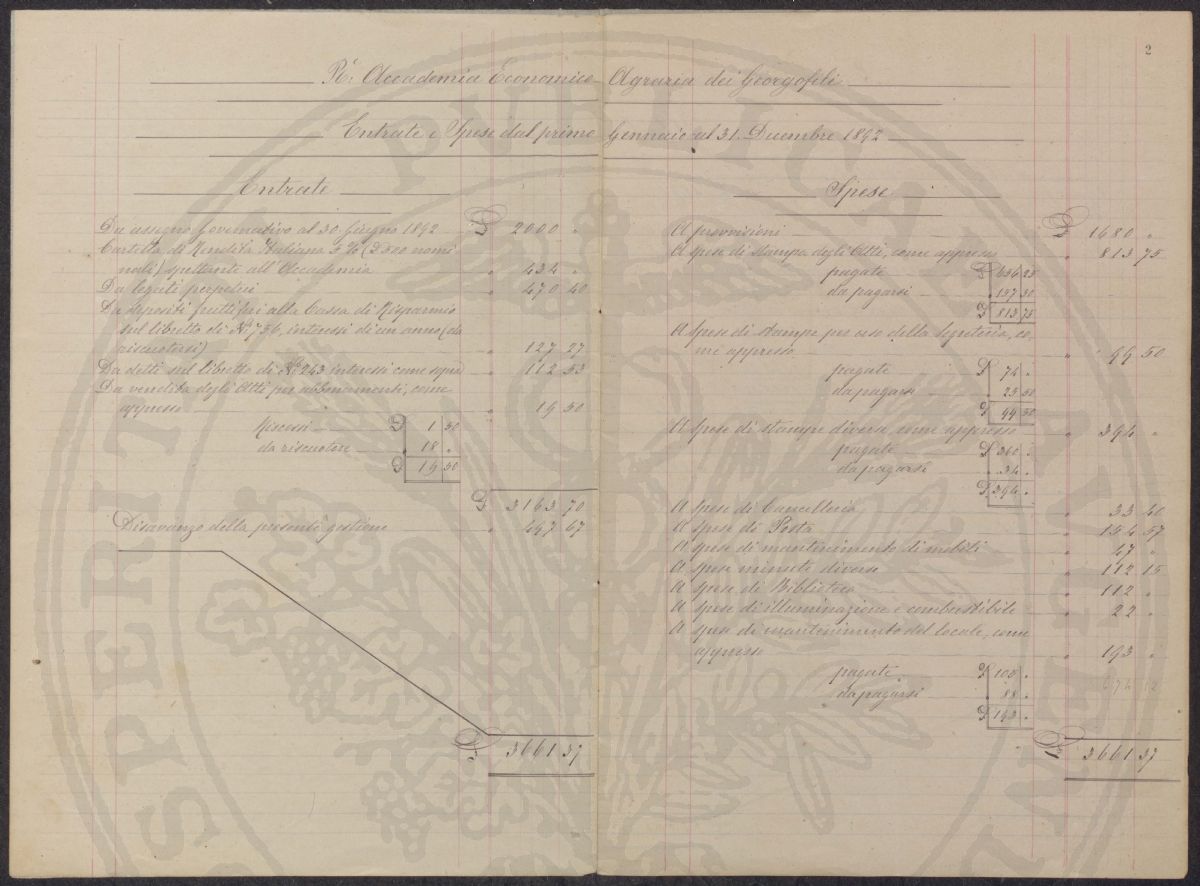 2
Rᵃ: Accademia Economico Agraria dei Georgofili
Entrate e Spese dal primo Gennaio al 31. Dicembre 1892
Entrate
Da assegno Governativo al 30 Giugno 1892 £ 2000 "
Cartella di Rendita Italiana 5 % (£ 500 nomi
nali) spettante all'Accademia " 434 "
Da legati perpetui " 470 40
Da depositi fruttiferi alla Cassa di Risparmio
sul libretto di Nº 756, interessi di un anno (da
riscuotersi) " 127 27
Da detti sul libretto di Nº 243 interessi come sopra " 112 53
Da vendita degli Atti per abbonamenti, come
appresso " 19 50
Riscossi £ 1 50
da riscuotere " 18 "
£ 19 50
£ 3163 70
Disavanzo della presente gestione " 497 67
£ 3661 37
Spese
A provvisioni £ 1680 "
A spese di stampa degli Atti, come appresso " 813 75
pagate £ 656 25
da pagarsi " 157 50
£ 813 75
A spese di stampe per uso della Segreteria, co-
me appresso " 99 50
pagate £ 74 "
da pagarsi " 25 50
£ 99 50
A spese di stampe diverse, come appresso " 394 "
pagate £ 360 "
da pagarsi " 34 "
£ 394 "
A spese di Cancelleria " 33 40
A spese di Posta " 154 57
A spese di mantenimento di mobili " 47 "
A spese minute diverse " 112 15
A spese di Biblioteca " 112 "
A spese di illuminazione e combustibile " 22 "
A spese di mantenimento del locale, come
appresso " 193 "
pagate £ 105 "
da pagarsi " 88 "
£ 193 "
£ 3661 37
PVBLICAE